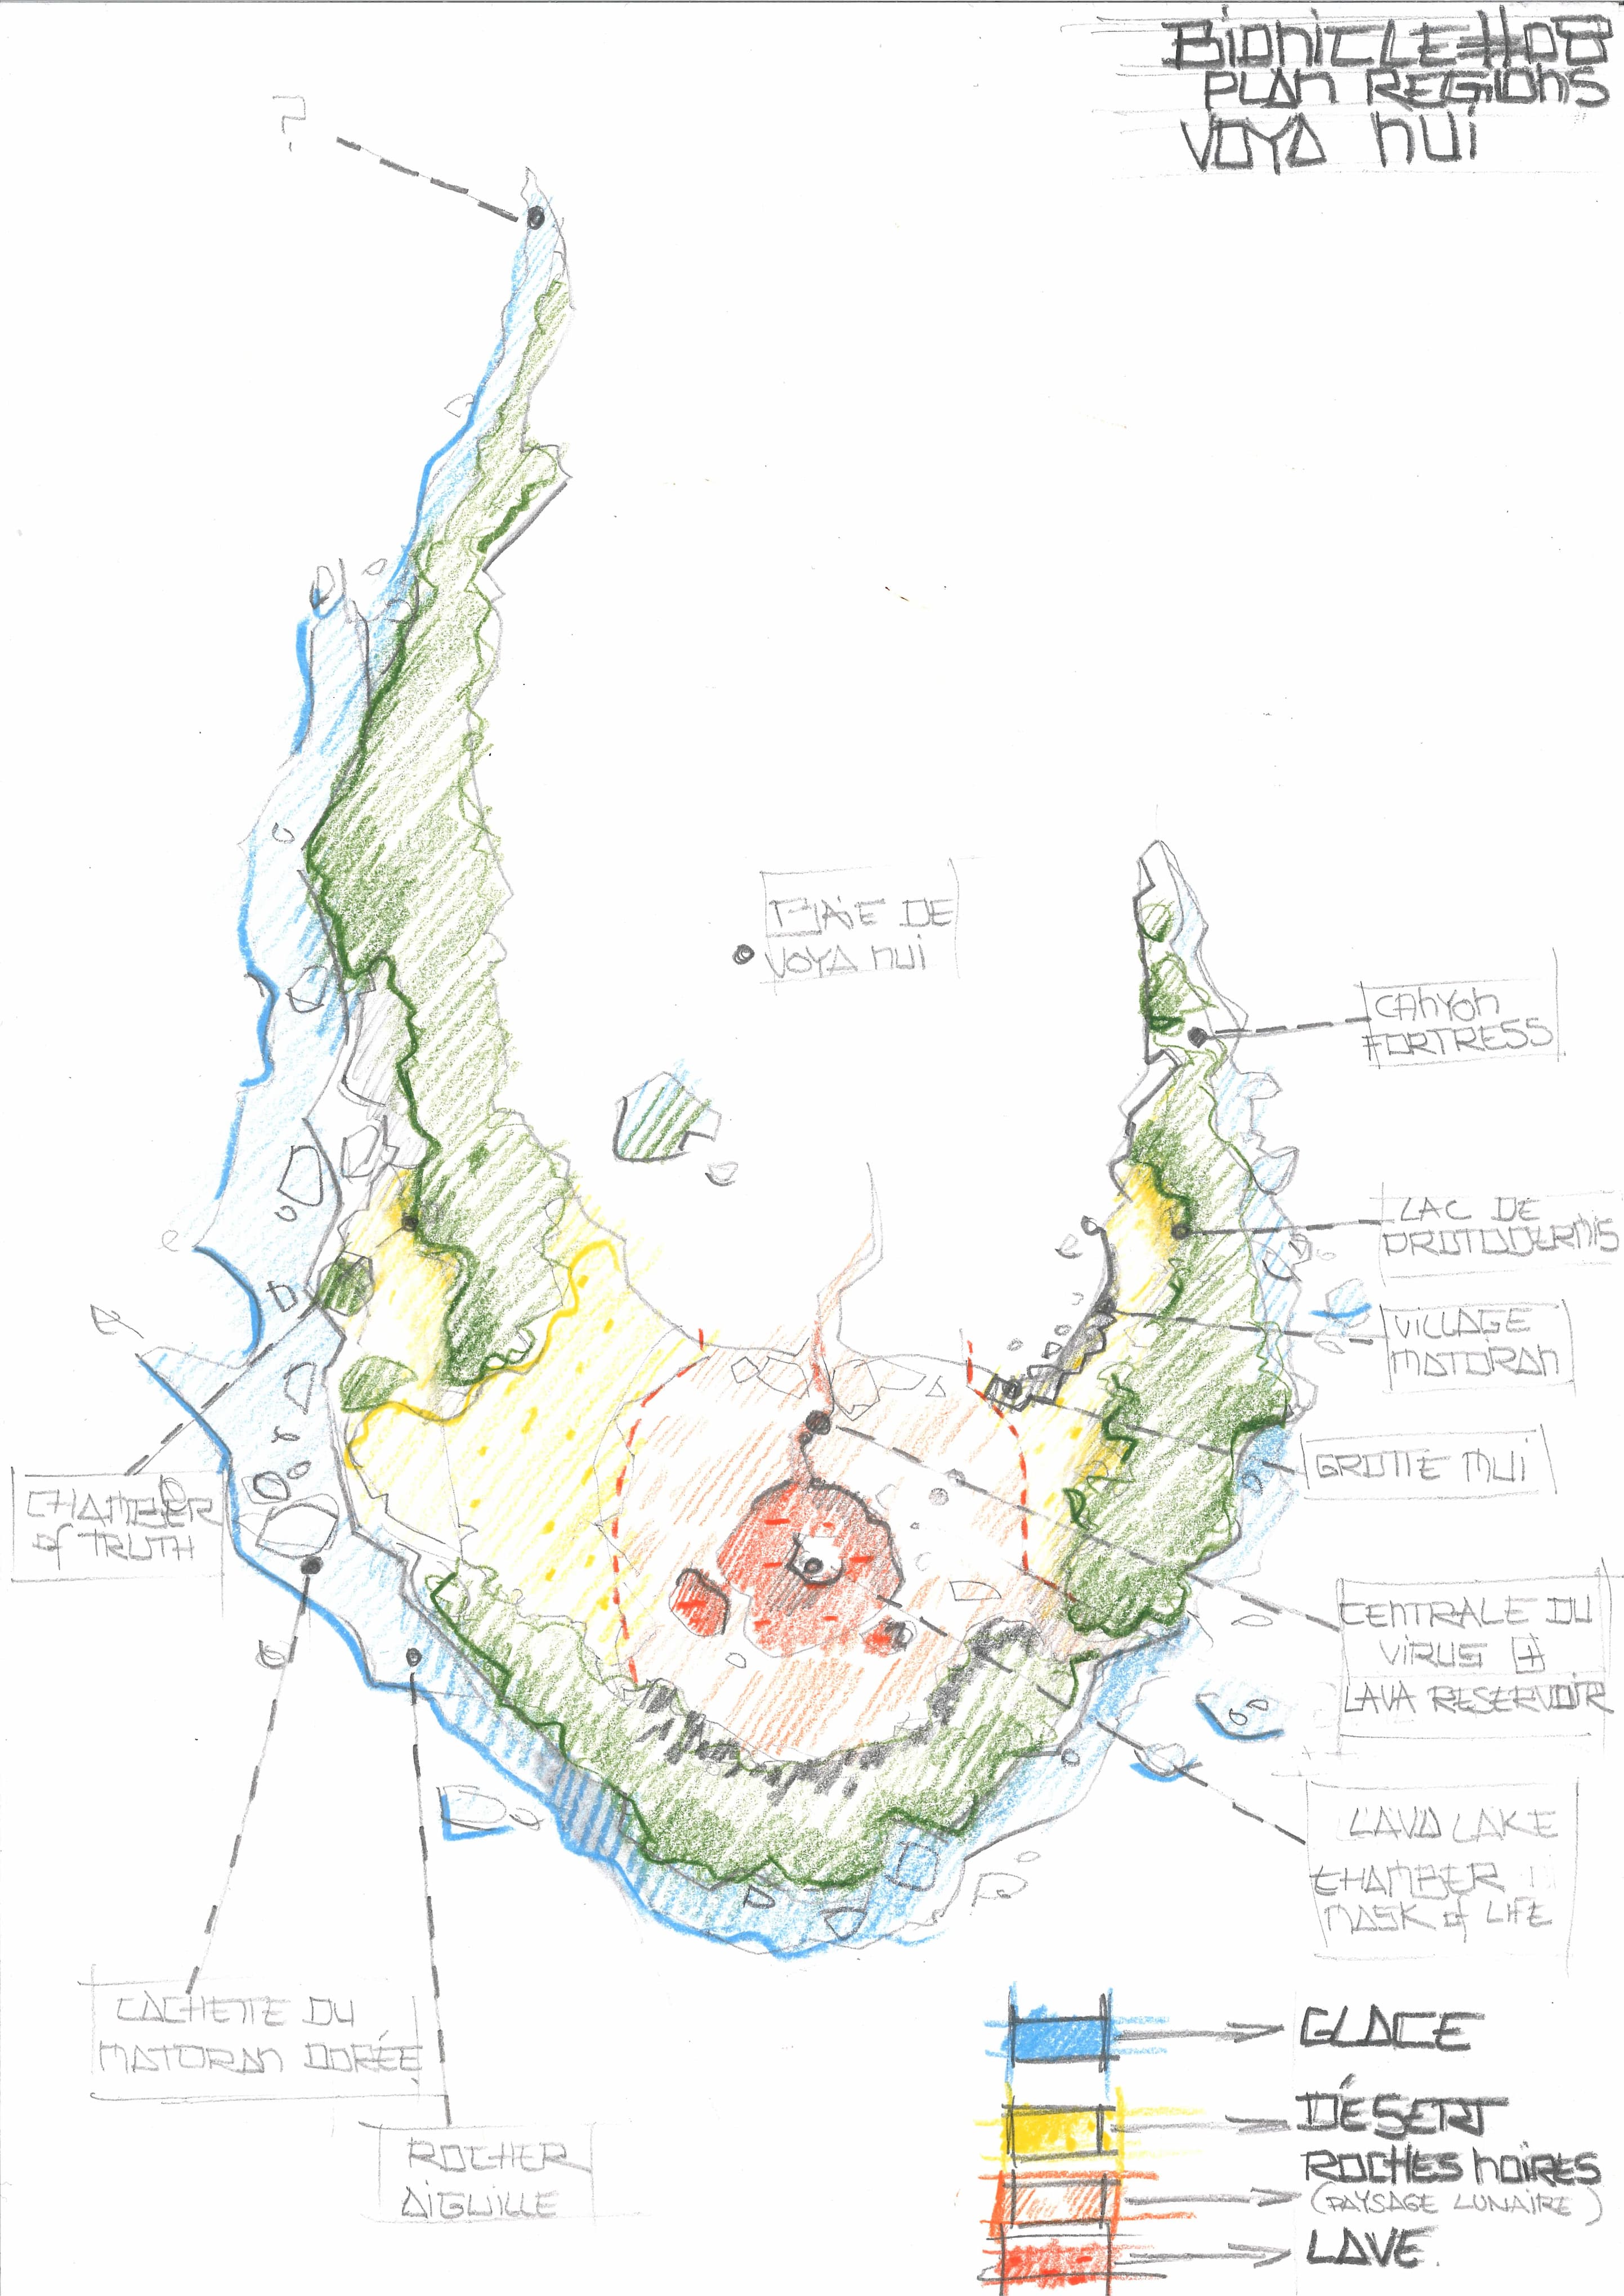 BIONICLE #08
PLAN REGIONS
VOYA NUI
?
BAIE DE
VOYA NUI
CANYON
FORTRESS
LAC DE
PROTODERMIS
VILLAGE
MATORAN
GROTTE MUI
CHAMBER
of TRUTH
CENTRALE DU
VIRUS +
LAVA RESERVOIR
LAVA LAKE
CHAMBER
MASK of LIFE
CACHETTE DU
MATORAN DORÉE
ROCHER
AIGUILLE
GLACE
DÉSERT
ROCHES NOIRES
(PAYSAGE LUNAIRE)
LAVE.